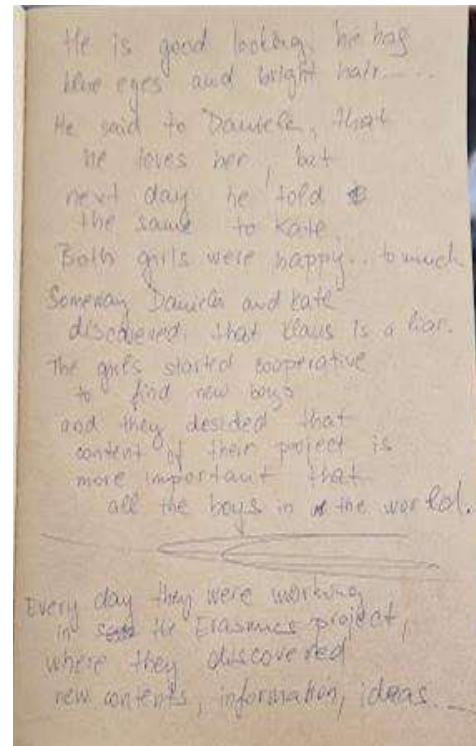 He is good looking, he has
blue eyes and bright hair.....
He said to Daniela, that
he loves her, but
next day he told
the same to Kate
Both girls were happy... to much
Someway Daniela and Kate
discovered, that Klaus is a liar.
The girls started cooperative
to find new boys
and they desided that
content of their project is
more important that
all the boys in the world.
Every day they were working
in the Erasmus project,
where they discovered
new contents, information, ideas....